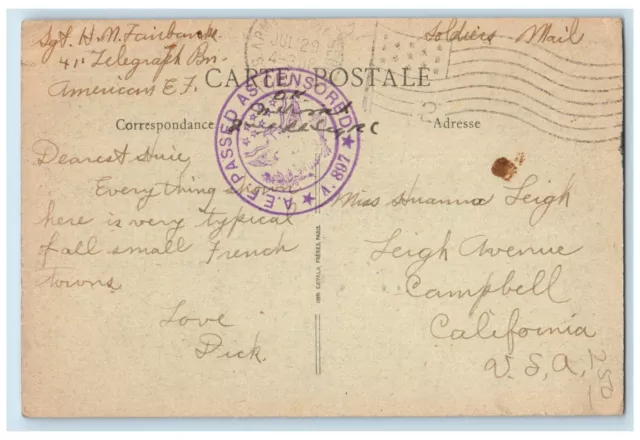 Sgt. H. M. Fairbank
Soldiers - Mail
41st Telegraph Bn.
American E. F.
JUL 29
CARTE POSTALE
Correspondance
Adresse
A.E.F. PASSED AS CENSORED
A. 807
OK
Dearest Huie,
Everything shown
here is very typical
of all small French
towns
Love
Dick.
CAYALA, FRÈRES, PARIS.
Miss Huanna Leigh
Leigh Avenue
Campbell
California
U.S.A.
250